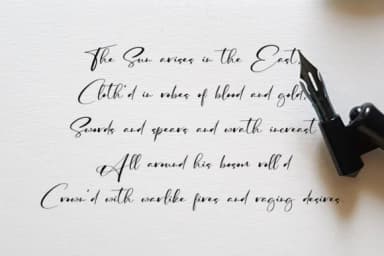 The Sun arises in the East,
Cloth'd in robes of blood and gold;
Swords and spears and wrath increast
All around his bosom roll'd
Crown'd with warlike fires and raging desires